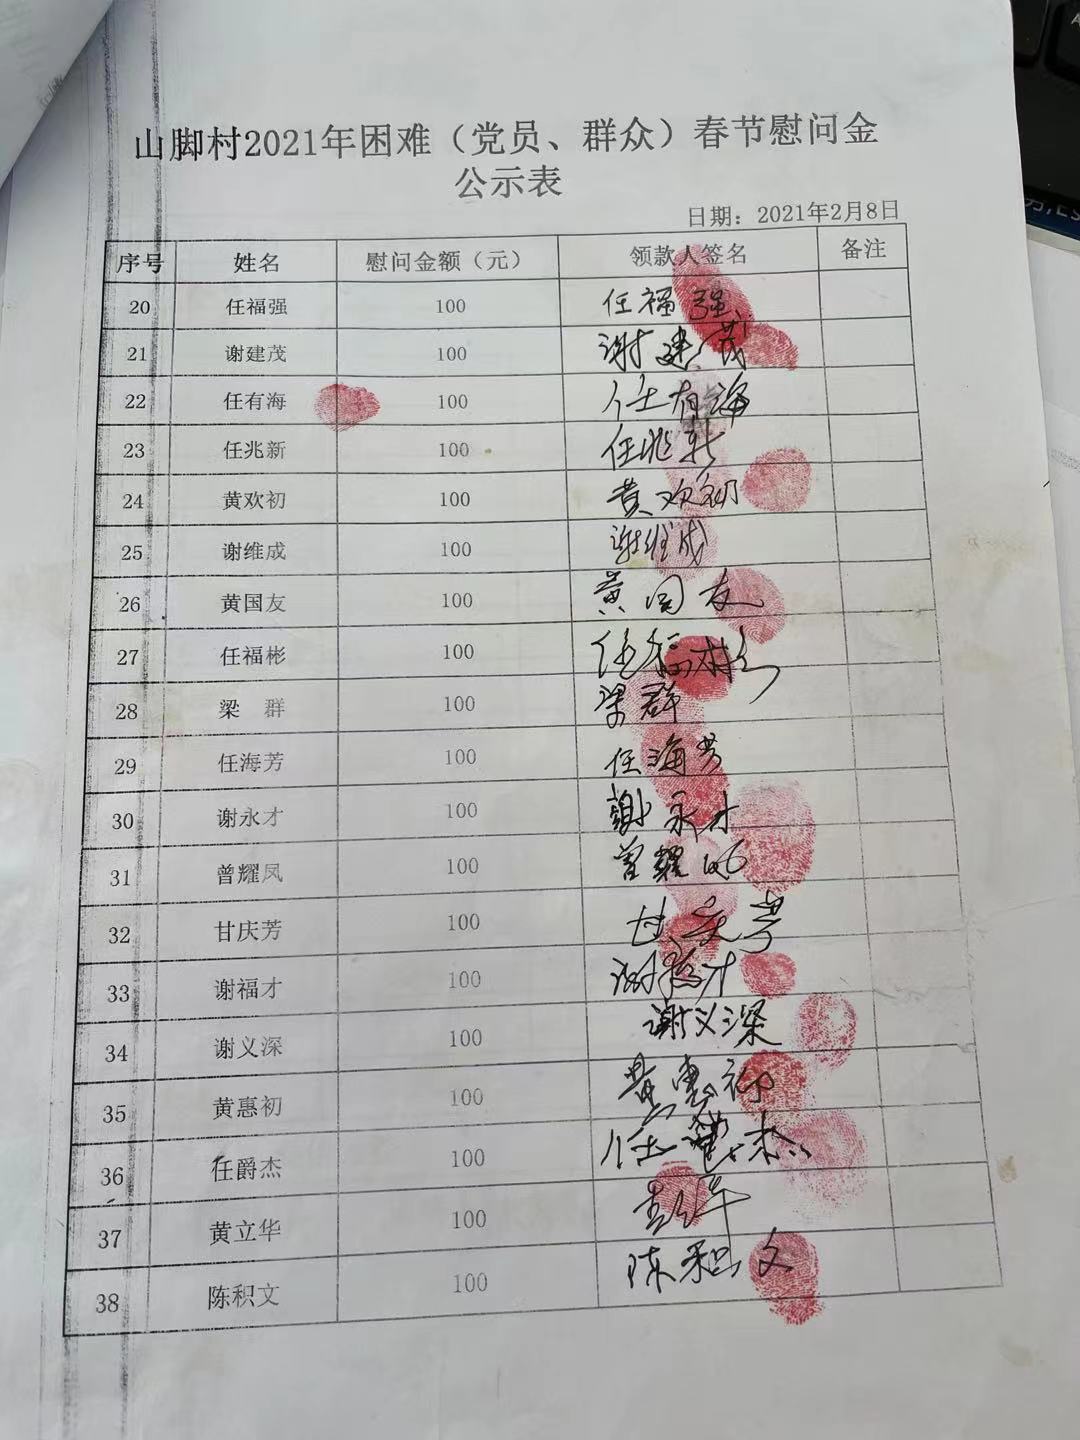 山脚村2021年困难（党员、群众）春节慰问金
公示表
日期：2021年2月8日
序号 姓名 慰问金额（元） 领款人签名 备注
20 任福强 100 任福强
21 谢建茂 100 谢建茂
22 任有海 100 任有海
23 任兆新 100 任兆新
24 黄欢初 100 黄欢初
25 谢维成 100 谢维成
26 黄国友 100 黄国友
27 任福彬 100 任福彬
28 梁 群 100 梁群
29 任海芳 100 任海芳
30 谢永才 100 谢永才
31 曾耀凤 100 曾耀
32 甘庆芳 100 甘庆芳
33 谢福才 100 谢福才
34 谢义深 100 谢义深
35 黄惠初 100 黄惠初
36 任爵杰 100 任爵杰
37 黄立华 100
38 陈积文 100 陈积文